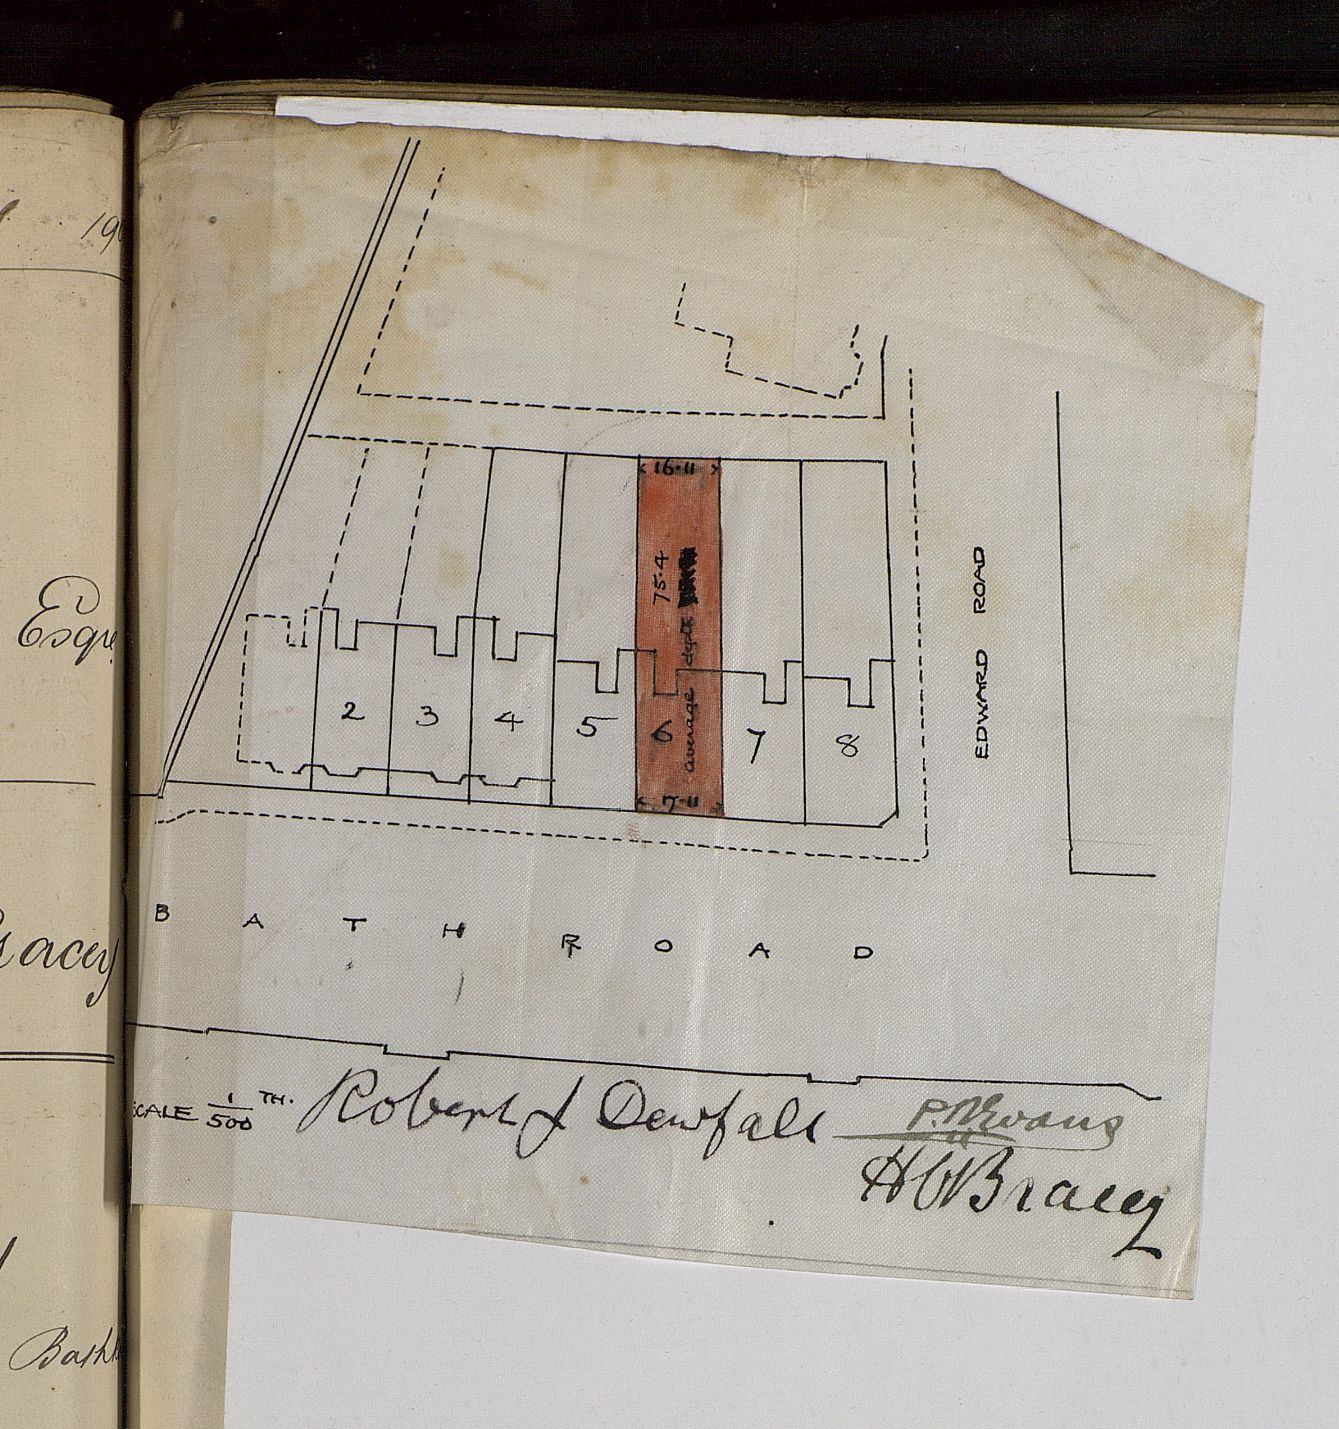 Esqre
16·11
75·4
average depth
2 3 4 5 6 7 8
7·11
EDWARD ROAD
BATH ROAD
SCALE 1/500 TH.
Robert J Dewfall
P. Evans
H C Bracey